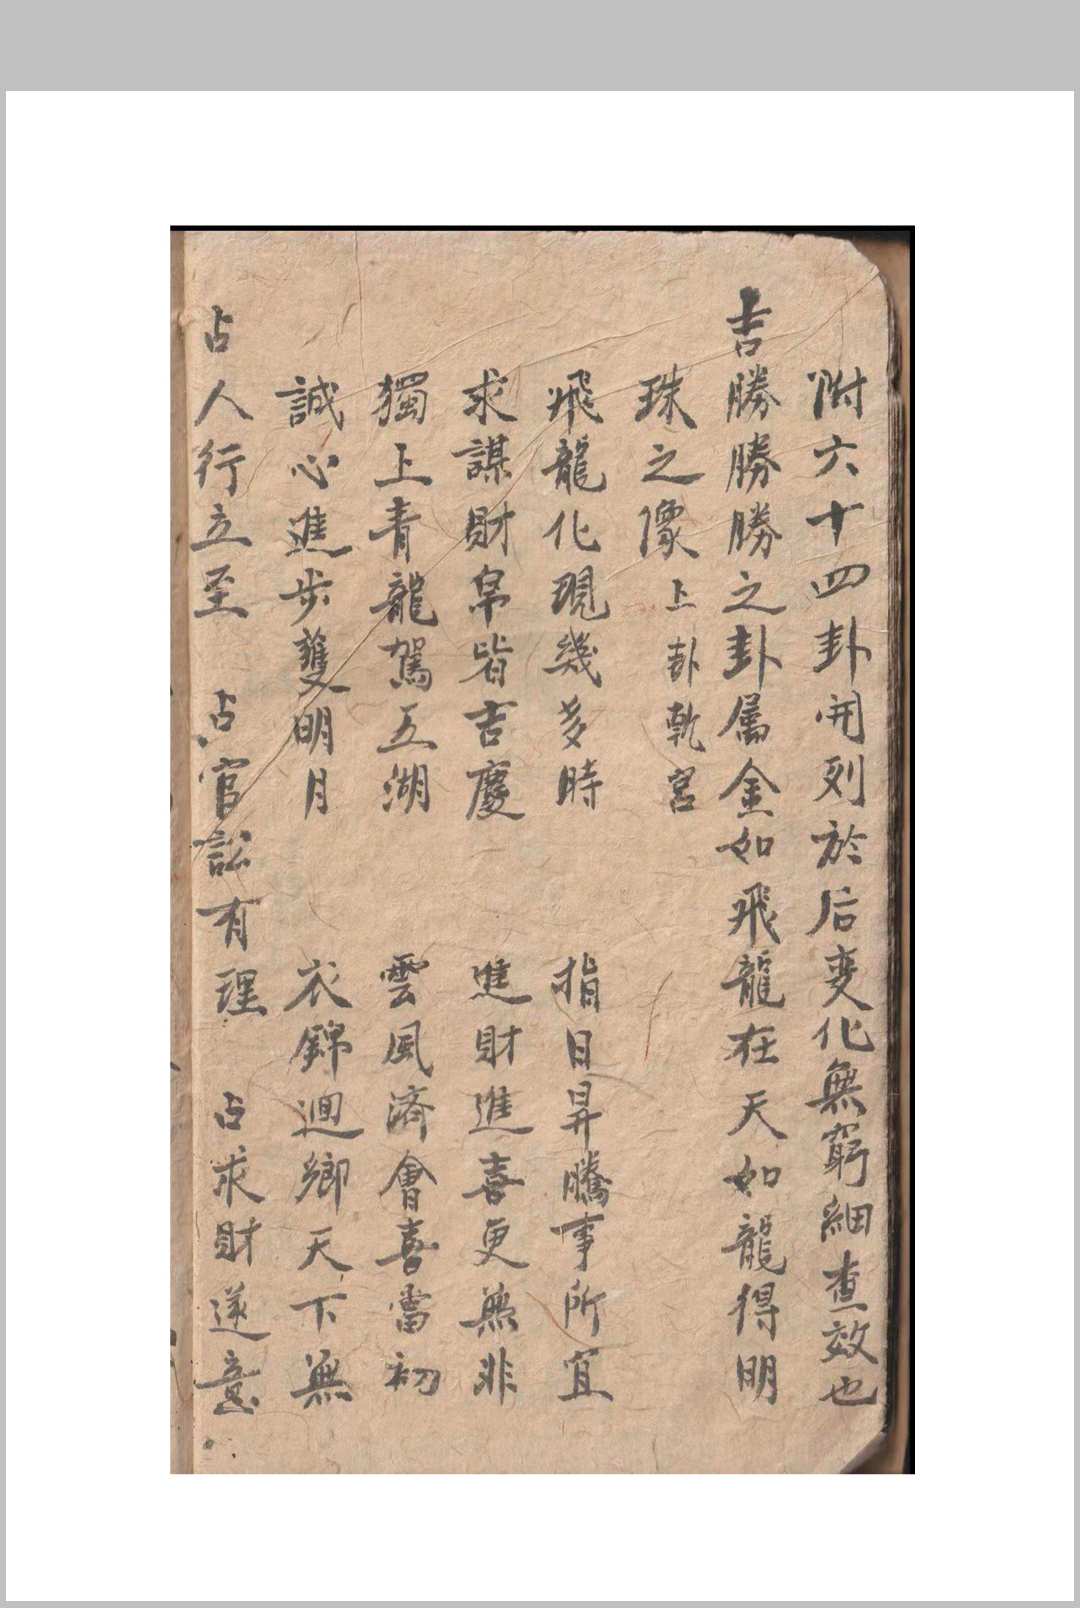 附六十四卦開列於后变化無窮細查效也
吉勝勝勝之卦屬金如飛龍在天如龍得明
珠之像上卦乾宮
飛龍化現幾多時 指日昇騰事所宜
求謀財帛皆吉慶 進財進喜更無非
獨上青龍駕五湖 雲風濟會喜當初
誠心進步雙明月 衣錦迴鄉天下無
占人行立至 占官訟有理 占求財遂意